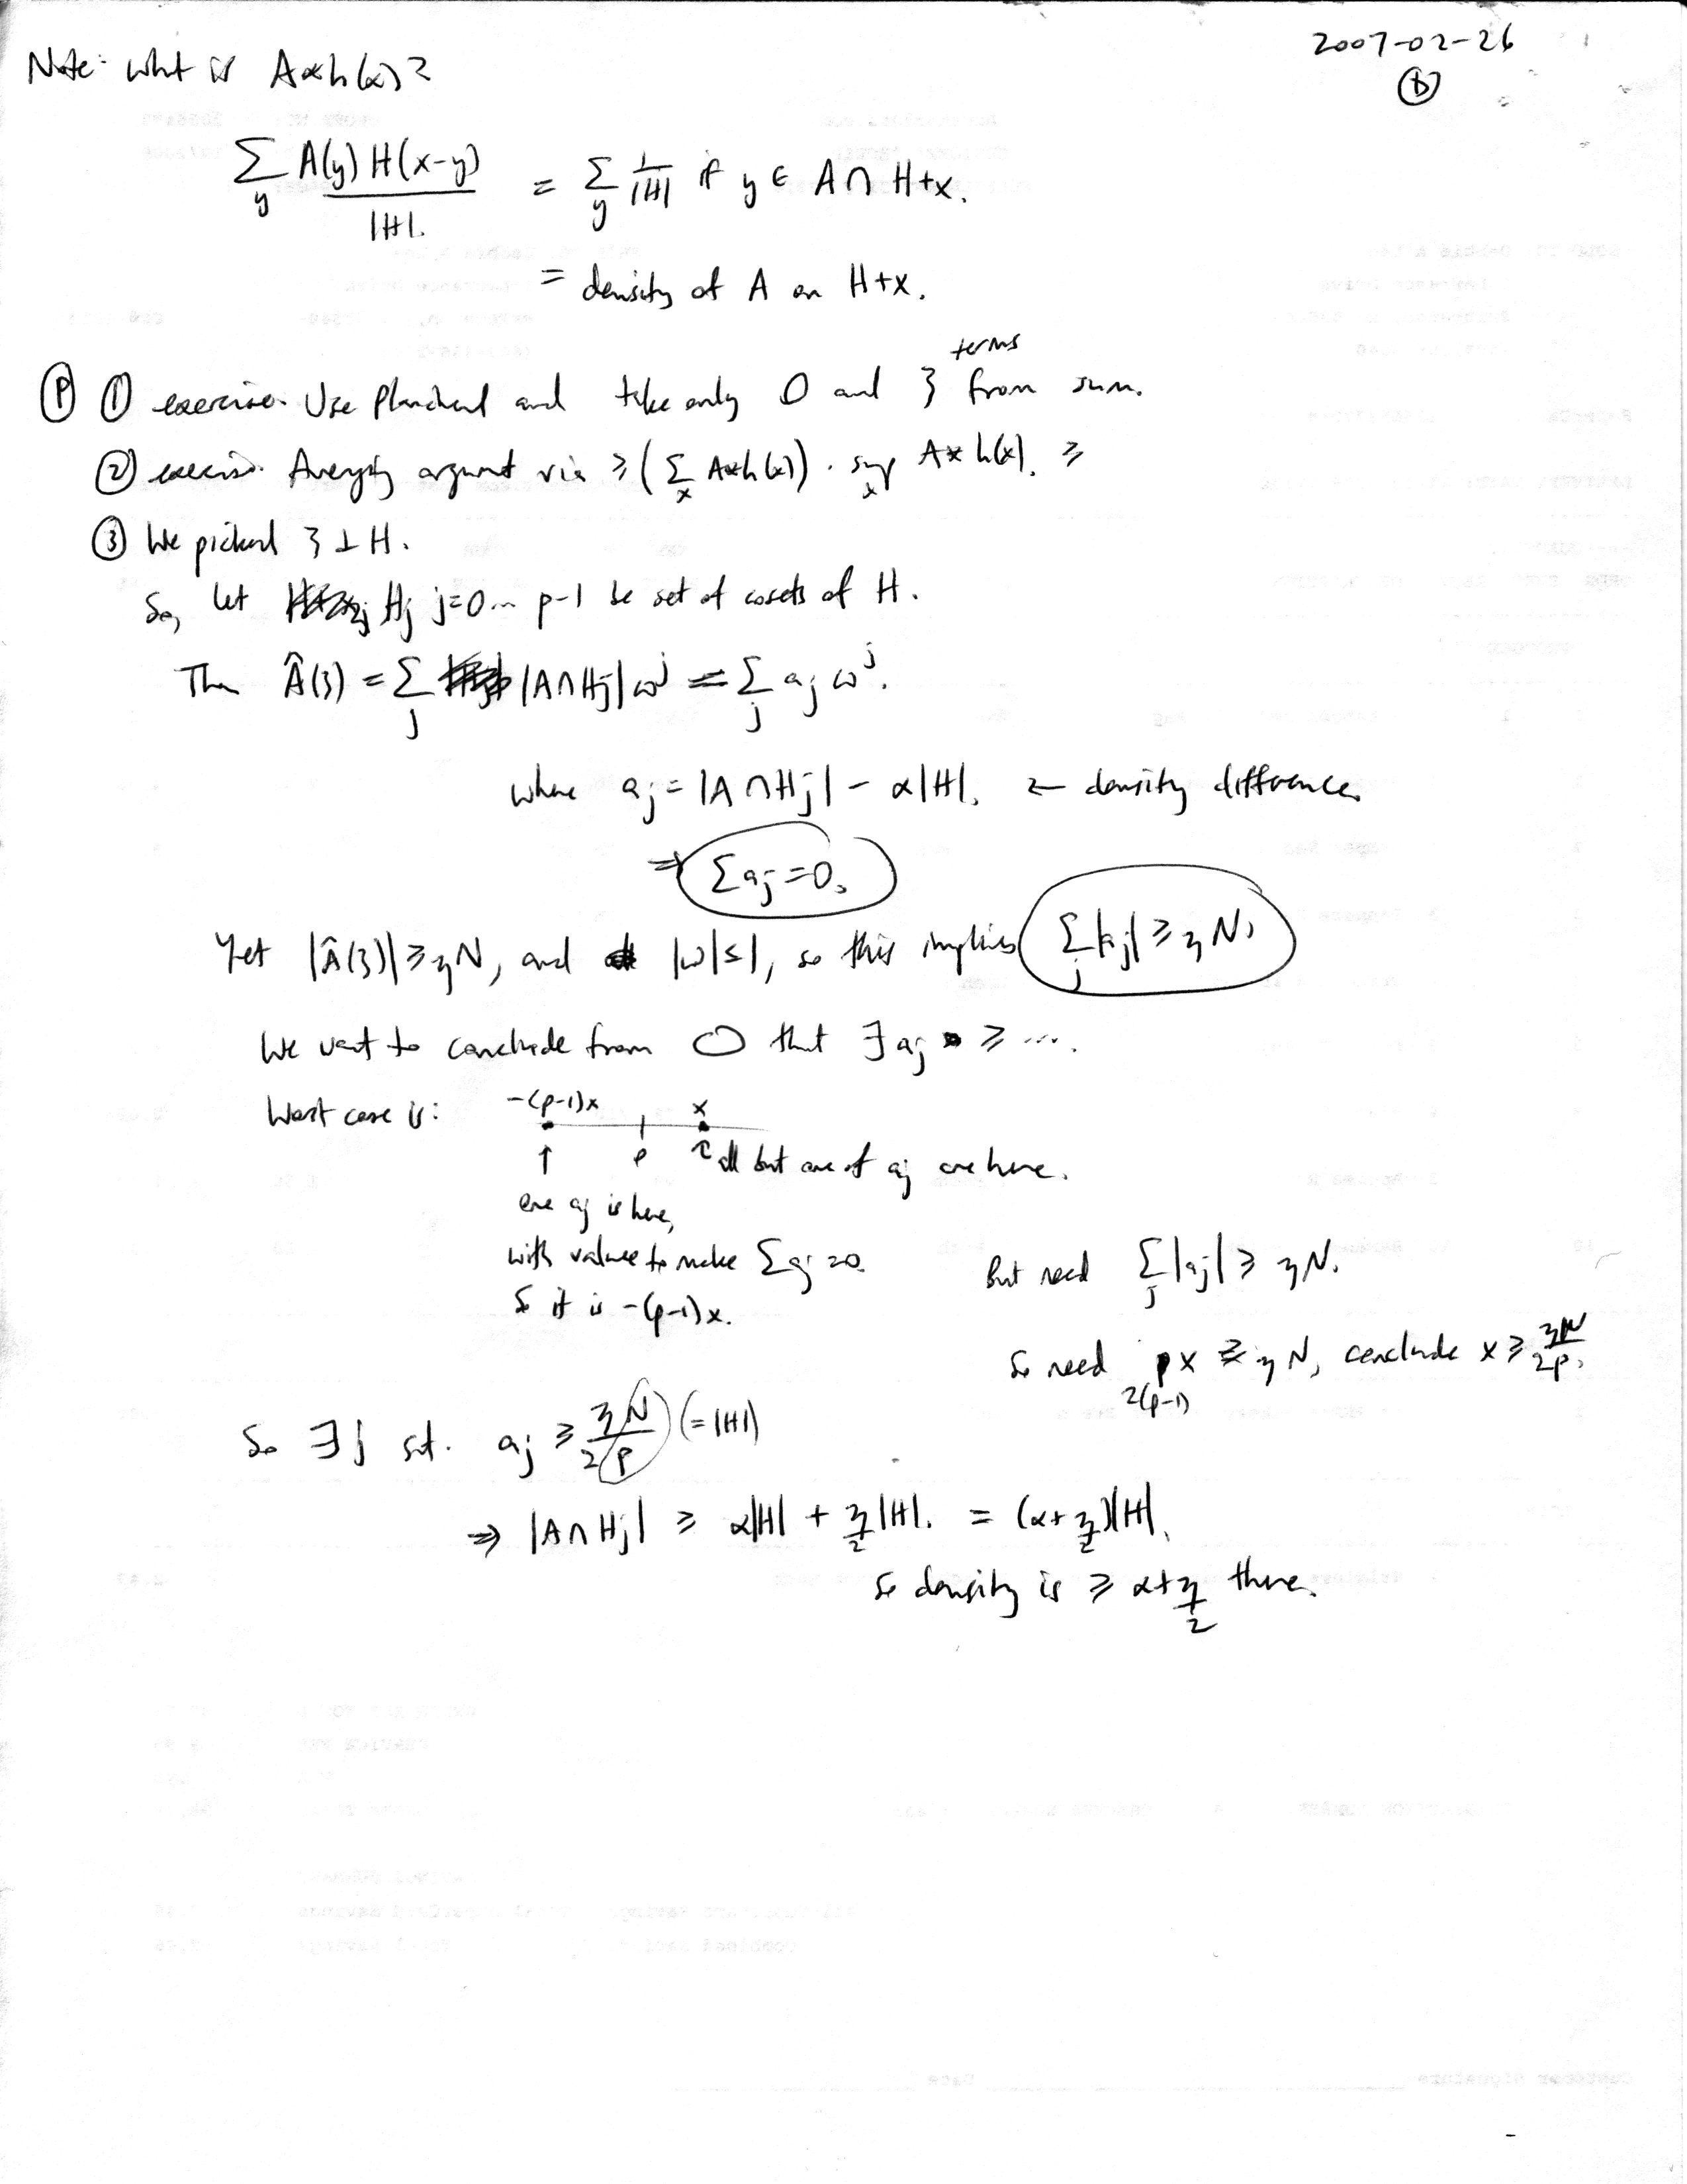 2007-02-26
ⓑ
Note: what is A*h(x)?
∑_y A(y) H(x-y) / |H|. = ∑_y 1/|H| if y ∈ A ∩ H+x.
= density of A on H+x.
Ⓟ ① exercise. Use Plancherel and take only 0 and ξ terms from sum.
② exercise. Averaging argument via ≥ (∑_x A*h(x)) · sup_x A*h(x). ≥
③ We picked ξ ⊥ H.
So, let H_j j=0... p-1 be set of cosets of H.
Then Â(ξ) = ∑_j |A∩H_j| ω^j = ∑_j a_j ω^j.
where a_j = |A ∩ H_j| - α|H|. ← density difference.
⇒ ∑ a_j = 0.
Yet |Â(ξ)| ≥ ηN, and |ω| ≤ 1, so this implies ∑_j |a_j| ≥ ηN.
We want to conclude from ○ that ∃ a_j ≥ ....
Worst case is: -(p-1)x 0 x
↑ all but one of a_j are here.
one a_j is here,
with value to make ∑ a_j = 0.
So it is -(p-1)x.
But need ∑_j |a_j| ≥ ηN.
So need 2(p-1) x ≥ ηN, conclude x ≥ ηN/2p.
So ∃ j s.t. a_j ≥ ηN/2p (= |H|)
⇒ |A ∩ H_j| ≥ α|H| + η/2 |H|. = (α + η/2)|H|.
So density is ≥ α + η/2 there.